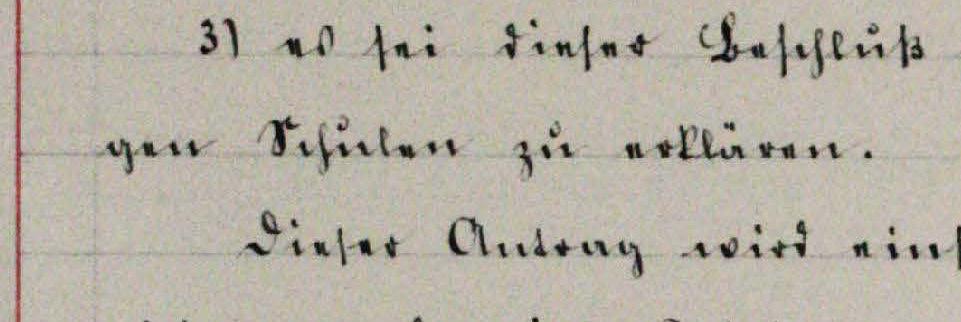 3) es sei dieser Beschluß
gen Schulen zu erklären.
Dieser Antrag wird eins